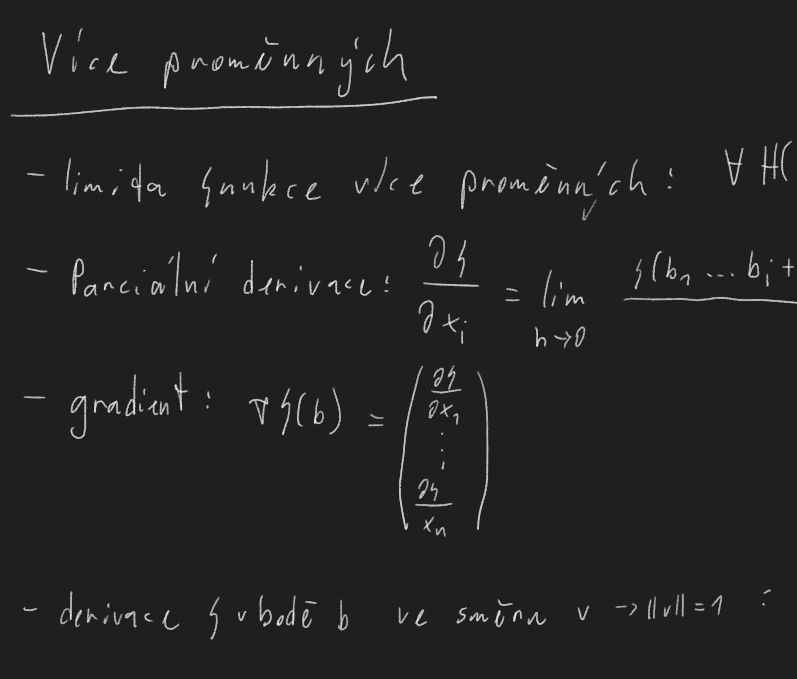 Více proměnných
- limita funkce více proměnných: ∀ H(
- Parciální derivace: ∂f/∂x_i = lim h→0 f(b_1 ... b_i +
- gradient: ∇f(b) = (∂f/∂x_1 ⋮ ∂f/x_n)
- derivace f v bodě b ve směru v → ||v|| = 1 :